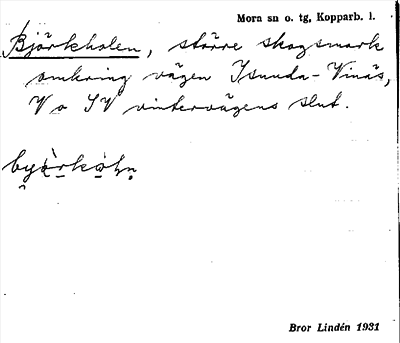 Mora sn o. tg, Kopparb. l.
Björkholen, större skogsmark
omkring vägen Isunda-Vinäs,
V o SV vintervägens slut.
Bror Lindén 1931